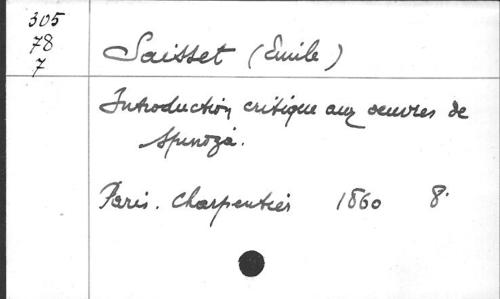 305
78
7
Saisset (Emile)
Introduction critique aux oeuvres de
Spinoza.
Paris. Charpentier 1860 8.